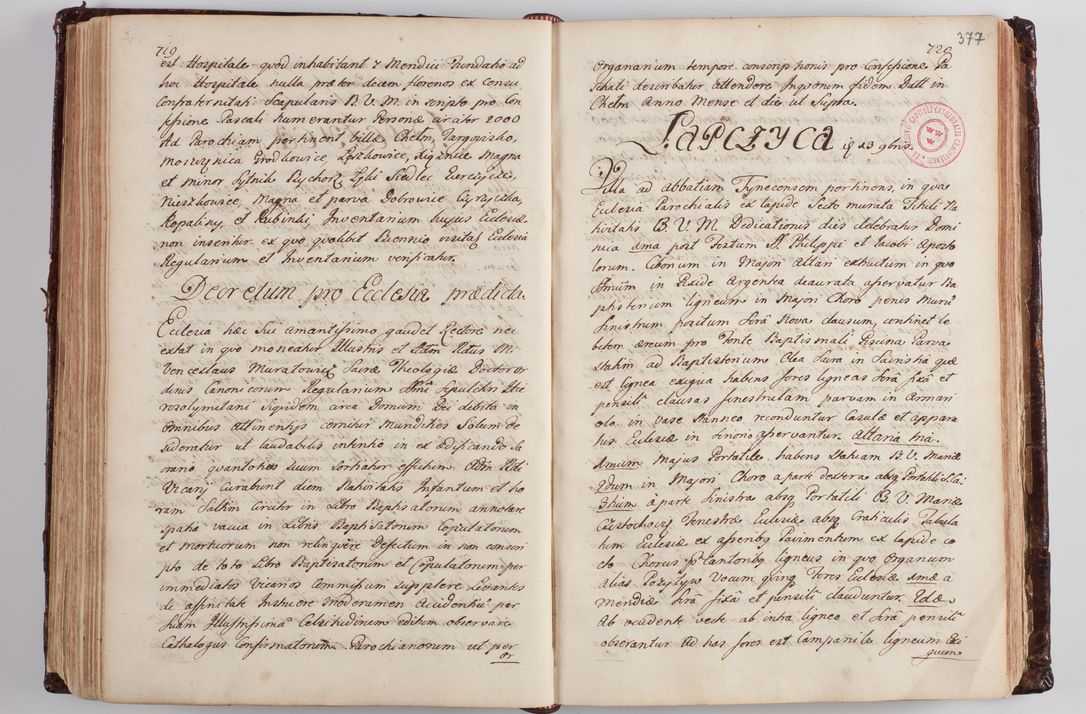 719
est Hospitale quod inhabitant 7 Mendici Fundatio ad
hoc Hospitale nulla præter decem florenos ex censu
Confraternitatis Scapularis B. V. M. in scripto pro Con
fessione Pascali numerantur Personæ circiter 2000
Ad Parochiam pertinent, villæ Chełm, Targowisko,
Moszczynica Grodkowice, Łęzkowice, Xiąznice Magna
et minor Sytnik Rychorz Zybl Siedlec
Nieszkowice, Magna et parva Dobrowice
Kopaliny, et Rubinki, Inventarium hujus Ecclesiæ
non inseritur ex quo quolibet Biennio Ecclesia
Regularium et Inventarium verificatur.
Decretum pro Ecclesia prædicta.
Ecclesia hæc sui amantissimo gaudet Rectore nec
extat in quo moneatur Illustris et Adm Rndus M.
Venceslaus Muratowicz Sacræ Theologiæ Doctor or
dinis Canonicorum Regularium Sepulchri Hie
rosolymitani siquidem circa Domum Dei debita in
omnibus attinentijs cernitur mundities Solum de
sideratur ut laudabilis intentio in ex ædificando Sa
crario quantoties suum sortiatur effectum Adm Rndi
Vicarij curabunt diem Nativitatis Infantum et ho
ram saltim circiter in Libro Baptisatorum annotare
spatia vacua in Libris Baptisatorum Copulatorum
et mortuorum non relinquere Defectum in non conscri
pto de toto Libro Baptisatorum et Copulatorum per
immediatos Vicarios Commissum supplere Levantes
de affinitate Instruere moderamen Accidentium per
suam Illustrissimam Celsitudinem editum observare
Cathalogus Confirmatorum Parochianorum uti per
or
720
377
organarium tempore conscriptionis pro Confessione Pa
schali describatur attendere Inquorum fidem Datt in
Chełm Anno Mense et die ut Supra.
ŁAPCZYCA 13 9bris
Villa ad abbatiam Tynecensem pertinens, in qua
Ecclesia Parochialis ex lapide Secto murata Tituli Na
tivitatis B. V. M. Dedicationis dies celebratur Domi
nica 2ma post Festum SS. Philippi et Jacobi Aposto
lorum. Ciborium in Majori Altari extructum in quo
in Pixide Argentea deaurata asservatur Ba
ptisterium ligneum in Majori Choro penes Murum
Sinistrum positum Sera Nova clausum, continet le
betem æreum pro Fonte Baptismali Piscina Parva
Statim ad Baptisterium Olea Sacra in Sacristia quæ
est lignea exigua habens fores ligneas sera fixa et
pensili clausas fenestrulam parvam in armari
olo in vase stanneo reconduntur Casulæ et appara
tus Ecclesiæ in asservantur. Altaria tria.
Primum Majus Portatile habens Statuam B. V. Mariæ
2dum in Majori Choro a parte dextera absq Portatili
3tium a parte sinistra absq Portatili B. V. Mariæ
Częstochovi Fenestræ Ecclesiæ absq Craticulis Tabula
tum Ecclesiæ ex asseribq Pavimentum ex lapide co
cto Chorus pro Cantoribq ligneus in quo Organum
alias Pozytyw Vocum Fores Ecclesiæ 1mæ a
meridie sera fixa et pensili clauduntur. 2dæ
Ab occidente vecte ab intra ligneo et sera pensili
obserantur Ad has fores est Campanile ligneum Exi
guum